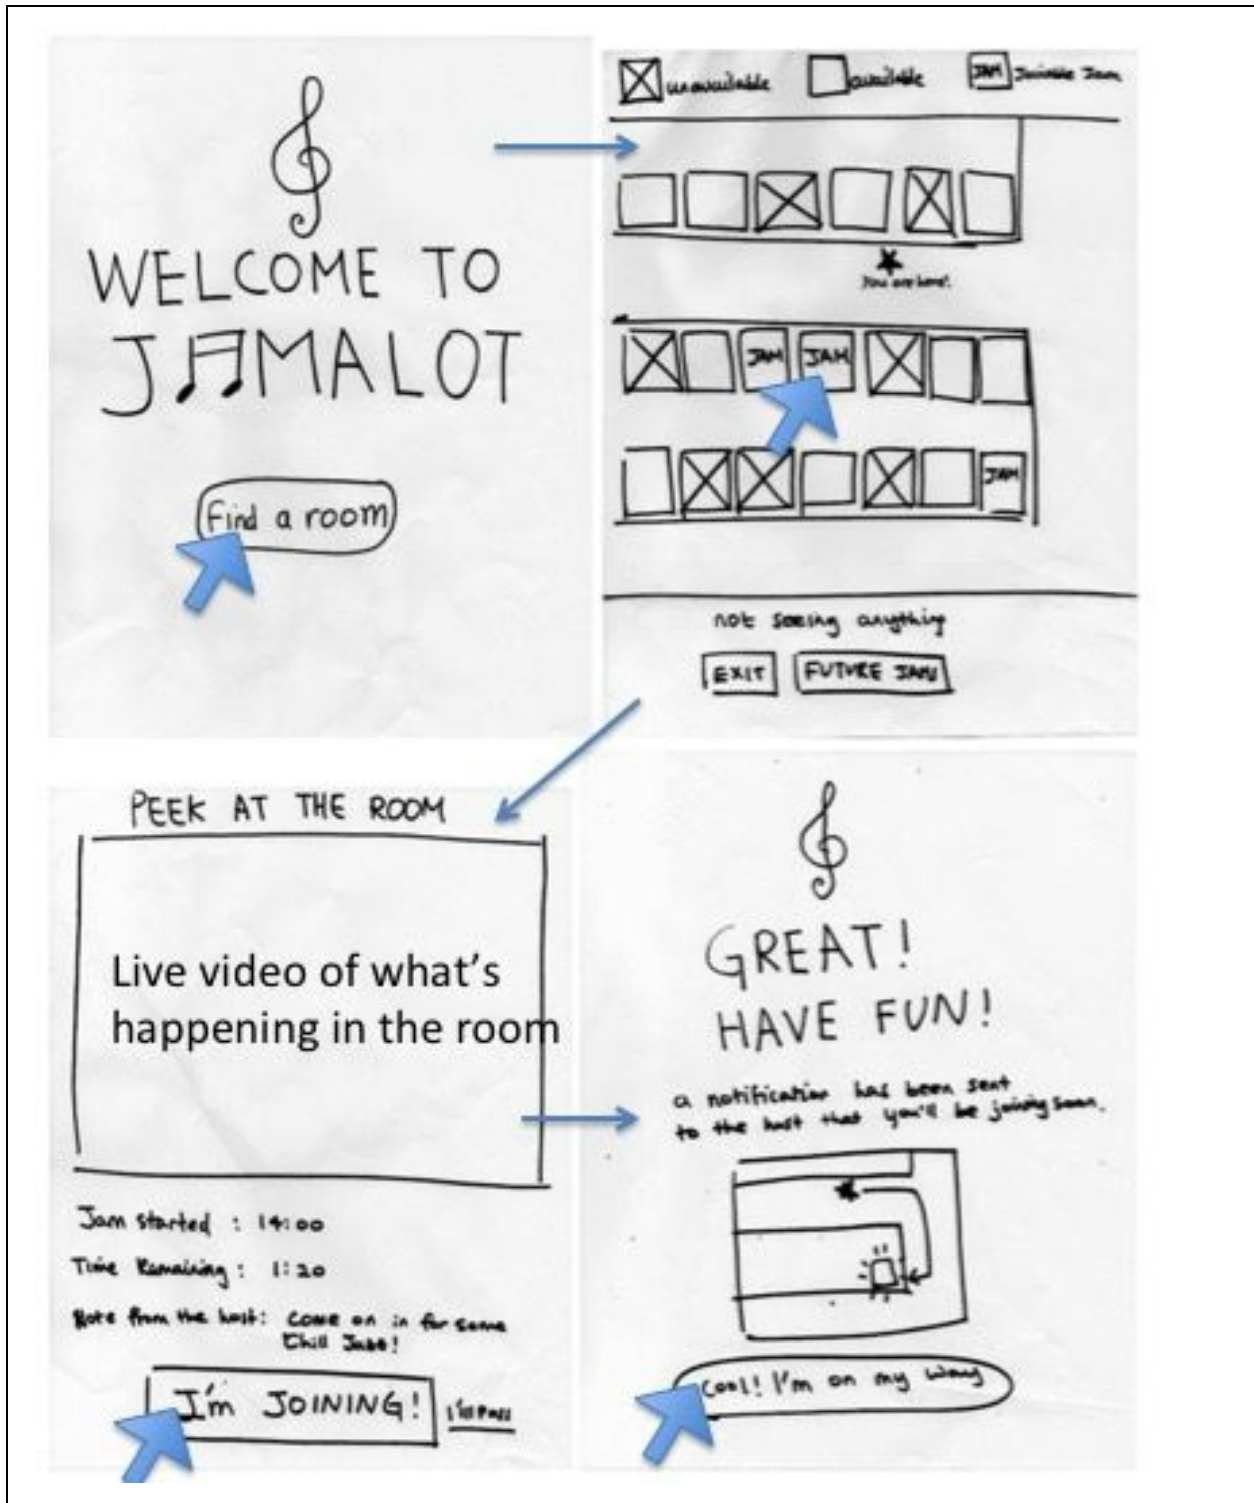 WELCOME TO
J♫MALOT
Find a room
unavailable available JAM Joinable Jam
You are here!
JAM JAM
JAM
not seeing anything
EXIT FUTURE JAMS
PEEK AT THE ROOM
Live video of what's
happening in the room
Jam started : 14:00
Time Remaining : 1:20
Note from the host: Come on in for some
Chill
I'm JOINING! I'll Pass
GREAT!
HAVE FUN!
a notification has been sent
to the host that you'll be joining soon.
Cool! I'm on my way